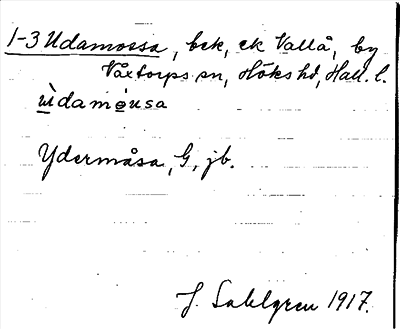 1-3 Udamossa, bck, ek Vallå, by
Våxtorps sn, Höks hd, Hall. l.
ùdamòusa
Ydermåsa, G, jb.
J. Sahlgren 1917.